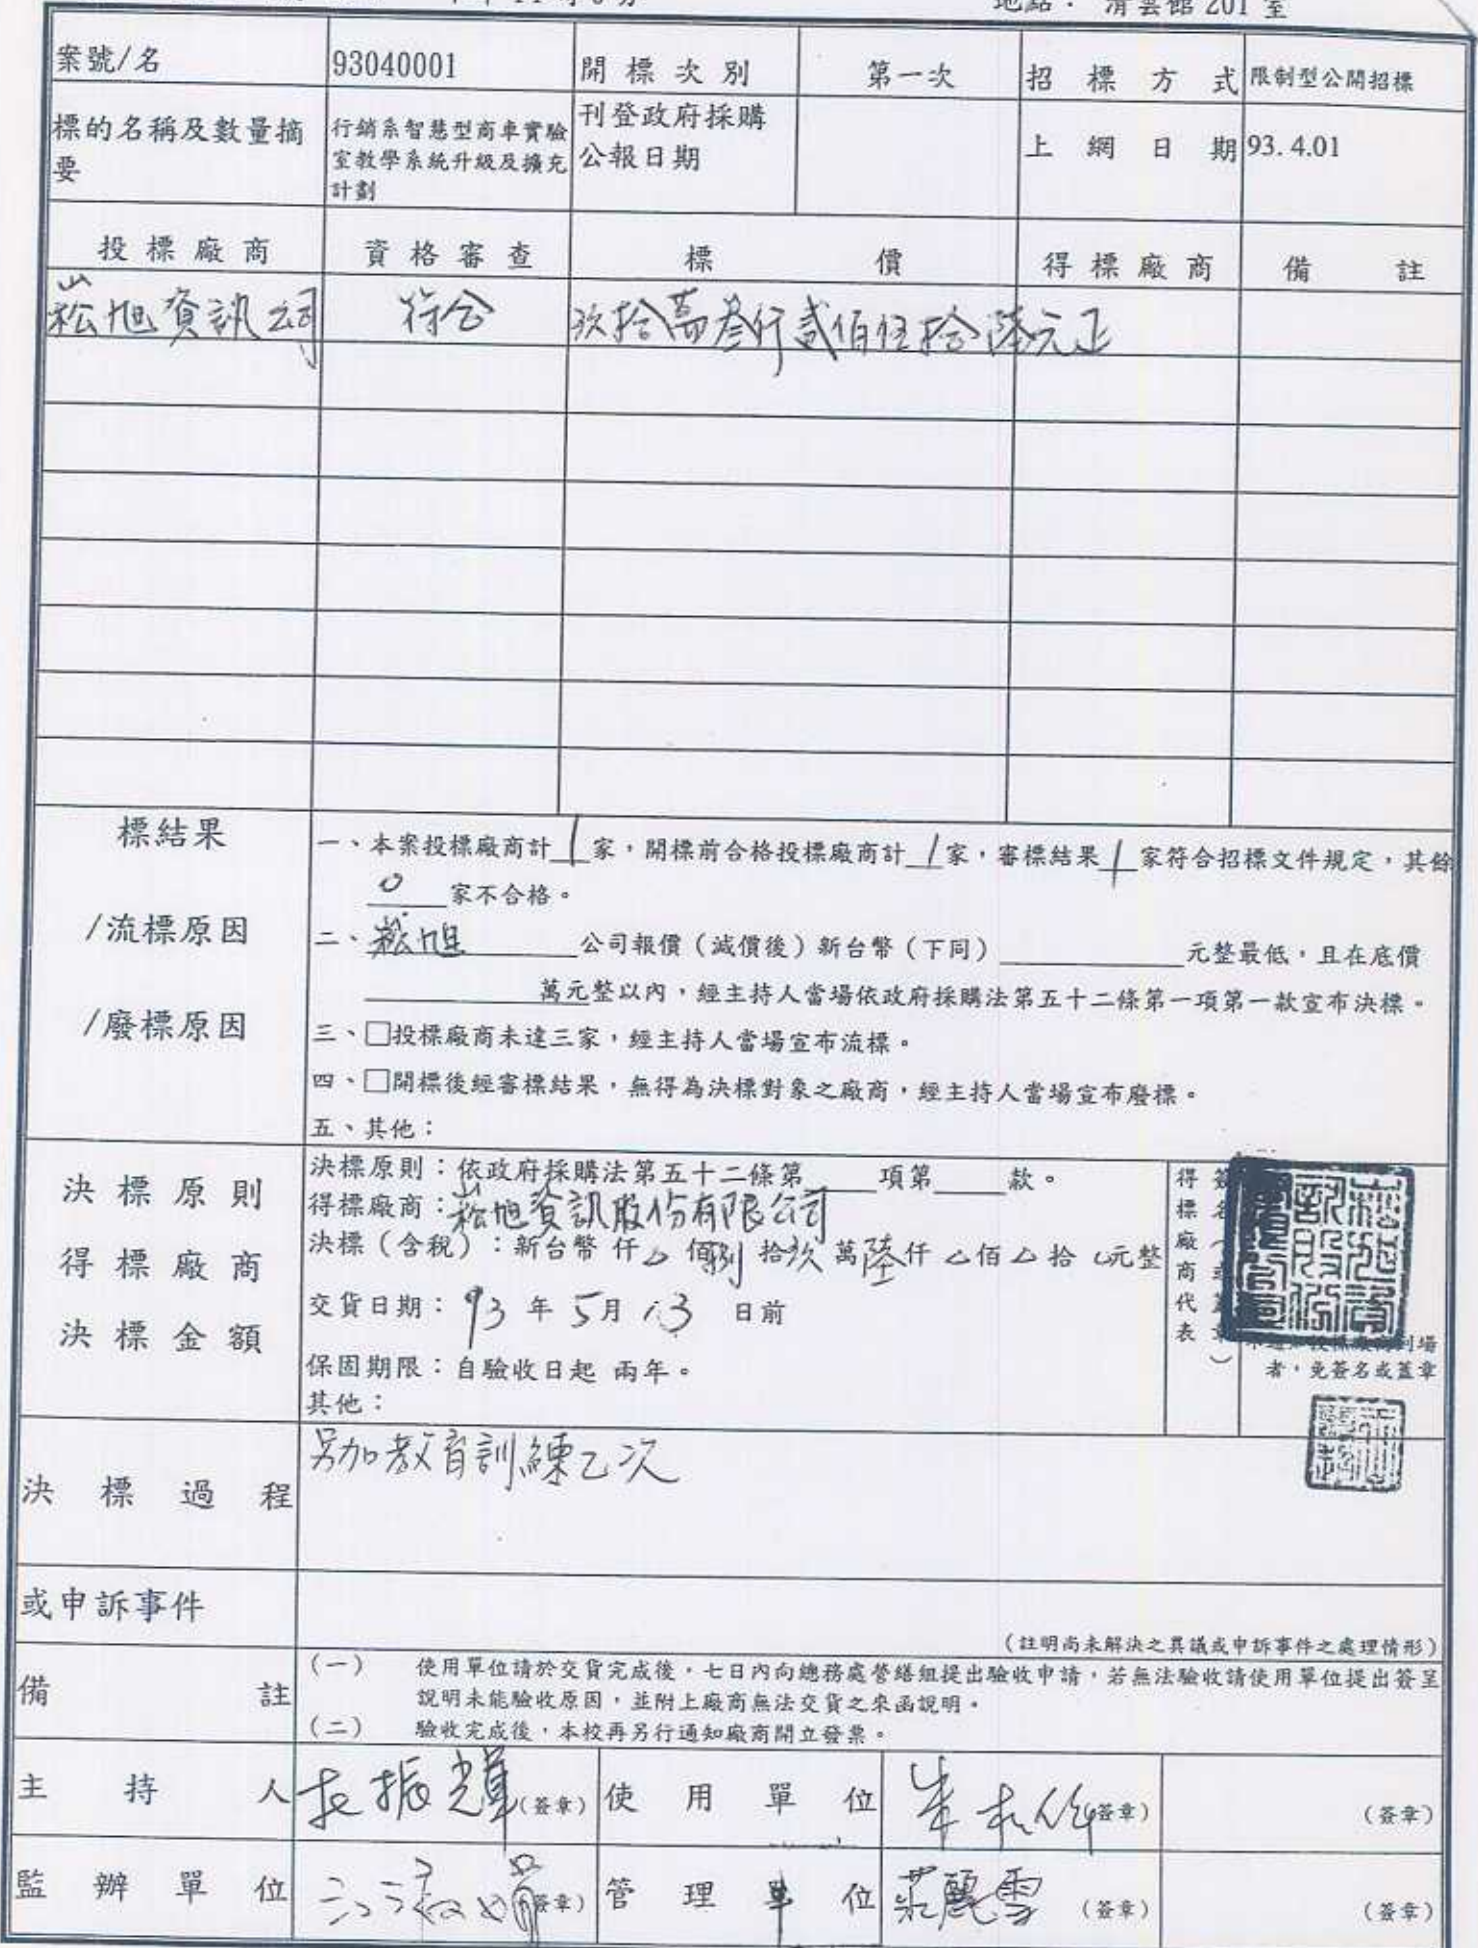 地點： 清雲館 201 室
案號/名 93040001 開標次別 第一次 招標方式 限制型公開招標
標的名稱及數量摘要 行銷系智慧型商車實驗室教學系統升級及擴充計劃 刊登政府採購公報日期 上網日期 93.4.01
投標廠商 資格審查 標價 得標廠商 備註
崧旭資訊公司 符合 玖拾萬叁仟貳佰伍拾陸元正
標結果
/流標原因
/廢標原因
一、本案投標廠商計 1 家，開標前合格投標廠商計 1 家，審標結果 1 家符合招標文件規定，其餘
0 家不合格。
二、崧旭 公司報價（減價後）新台幣（下同） 元整最低，且在底價
萬元整以內，經主持人當場依政府採購法第五十二條第一項第一款宣布決標。
三、□投標廠商未達三家，經主持人當場宣布流標。
四、□開標後經審標結果，無得為決標對象之廠商，經主持人當場宣布廢標。
五、其他：
決標原則
得標廠商
決標金額
決標原則：依政府採購法第五十二條第 項第 款。
得標廠商：崧旭資訊股份有限公司
決標（含稅）：新台幣 仟 佰捌拾玖萬陸仟 佰 拾 元整
交貨日期：93 年 5月 13 日前
保固期限：自驗收日起 兩年。
其他：
得標廠商代表
者，免簽名或蓋章
決標過程 另加教育訓練乙次
或申訴事件
（註明尚未解決之異議或申訴事件之處理情形）
備註
（一） 使用單位請於交貨完成後，七日內向總務處營繕組提出驗收申請，若無法驗收請使用單位提出簽呈
說明未能驗收原因，並附上廠商無法交貨之來函說明。
（二） 驗收完成後，本校再另行通知廠商開立發票。
主持人 振輝 （簽章） 使用單位 （簽章） （簽章）
監辦單位 （簽章） 管理單位 麗雪 （簽章） （簽章）